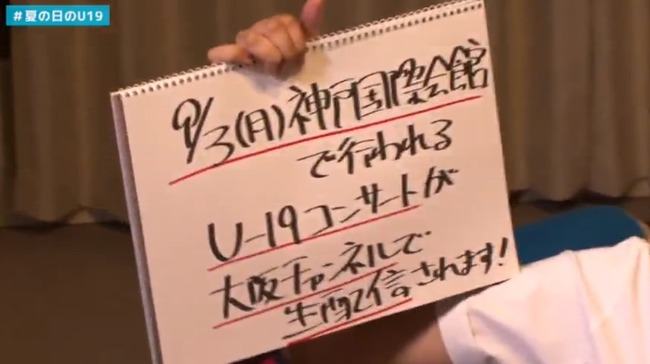 #夏の日のU19
9/3(月)神戸国際会館
で行われる
U-19コンサートが
大阪チャンネルで
生配信されます!